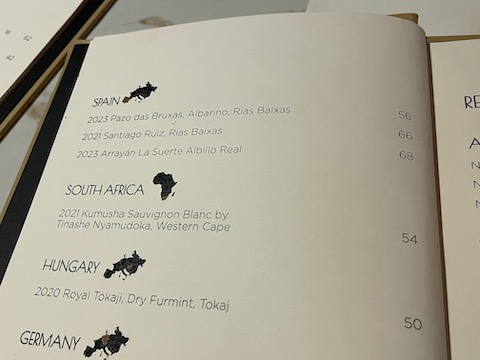 16 62
42
SPAIN
2023 Pazo das Bruxas, Albarino, Rias Baixas 56
2021 Santiago Ruiz, Rias Baixas 66
2023 Arrayán La Suerte Albillo Real 68
SOUTH AFRICA
2021 Kumusha Sauvignon Blanc by
Tinashe Nyamudoka, Western Cape 54
HUNGARY
2020 Royal Tokaji, Dry Furmint, Tokaj 50
GERMANY
RE
A
N
N
N